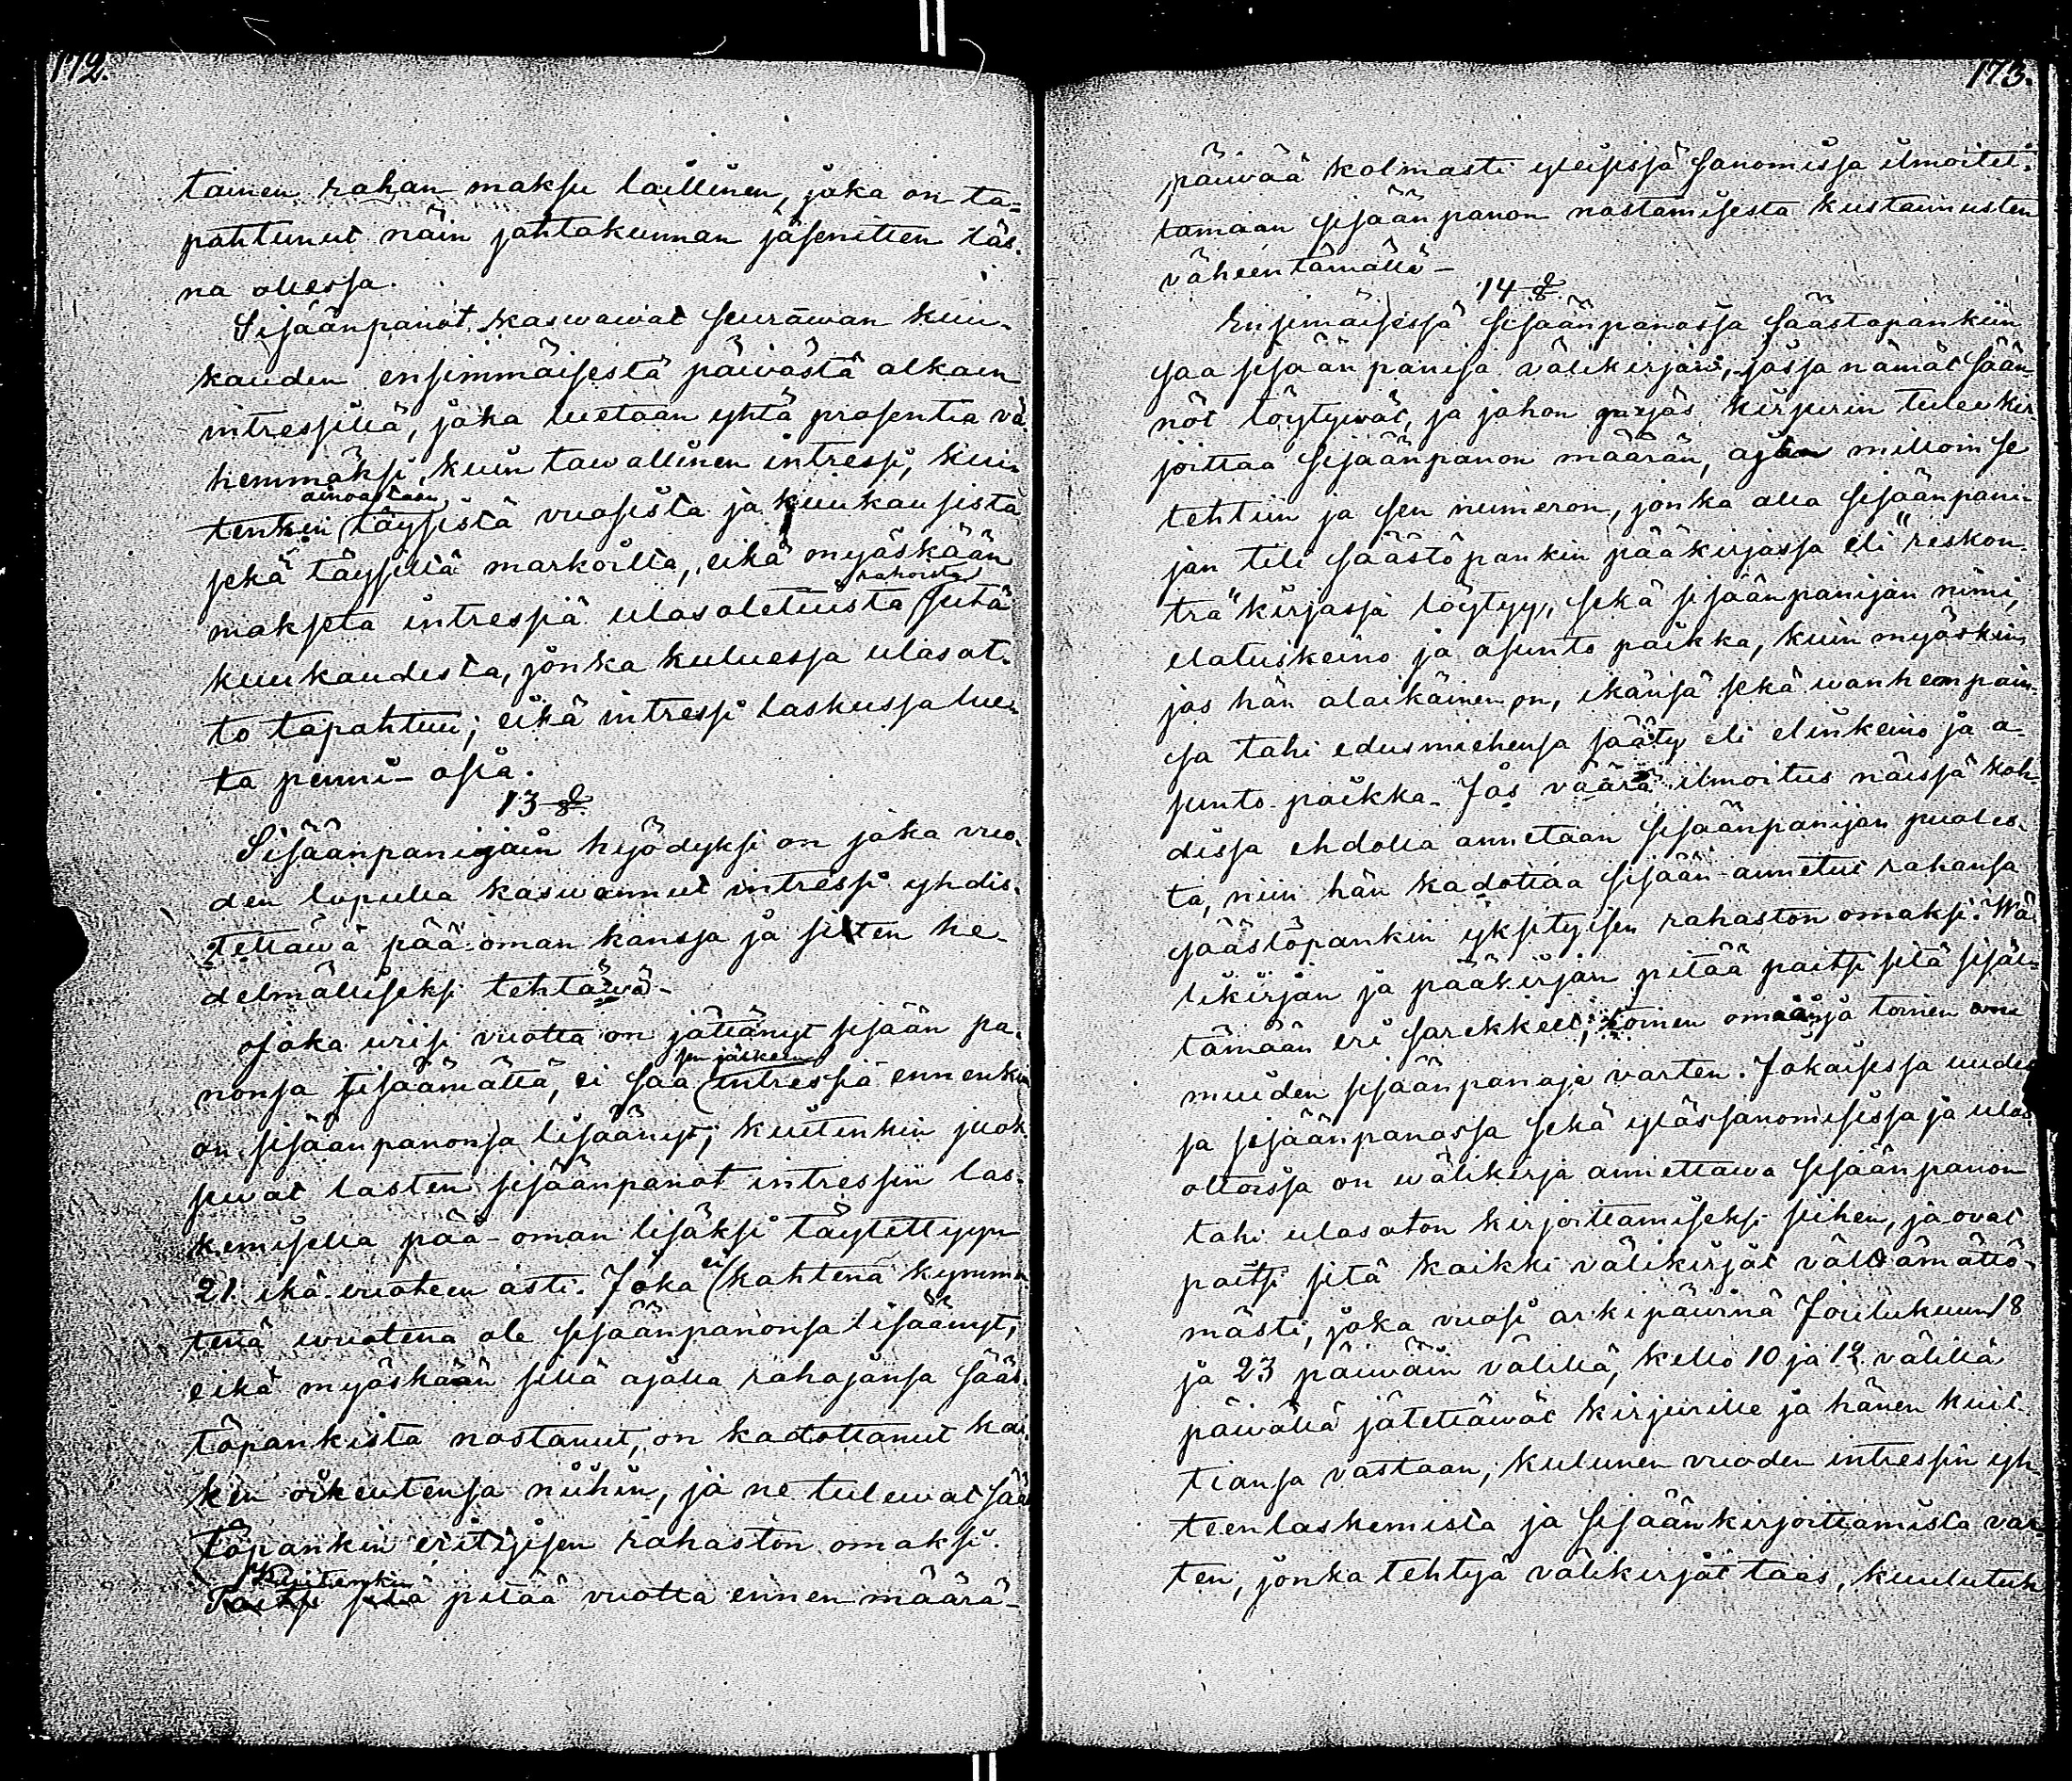 172.
tainen rahan maksu laillinen, joka on ta=
pahtunut näin johtokunnan jäsenitten läs-
na ollessa.
Sisäänpanot kaswawat seurawan kuu-
kauden ensimmäisestä päiwästä alkain
intressillä, joka luetaan yhtä prosentia vä-
hemmäksi kuin tawallinen intressi, kui-
ainoastaan
tenkin täysistä vuosista ja kuukausista
sekä täysillä markoilla, eikä myöskään
rahoista
makseta intressiä ulosotetuista siitä
kuukaudesta, jonka kuluessa ulosot-
to tapahtuu; eikä intressi laskussa lue-
ta penni-osia.
13 §
Sisäänpanijain hyödyksi on joka vuo-
den lopulla kaswannut intressi yhdis-
tettäwä pää-oman kanssa ja sitten he-
delmälliseksi tehtäwä-
Joka wiisi vuotta on jättänyt sisään pa-
sen jälkeen
nonsa lisäämättä, ei saa intressiä ennenkun
on sisäänpanonsa lisäänyt; kuitenkin juok-
sevat lasten sisäänpanot intressin las-
kemisella pää-oman lisäksi täytettyyn
21 ikä-vuoteen asti. Joka ei kahtena kymme-
tenä wuotena ole sisäänpanonsa lisäänyt,
eikä myöskään sillä ajalla rahojansa sääs-
töpankista nostanut, on kadottanut kai-
ken oikeutensa niihin, ja ne tulewat sääs
töpankin erityisen rahaston omaksi.
Kuitenkin
Paitsi sitä pitää vuotta ennen määrä-
173.
päiwää kolmasti yleisissä sanomissa ilmoitet-
tamaan sisäänpanon nostamisesta kustannusten
väheentämällä-
14 §
Ensimäisessä sisäänpanossa säästöpankiin
saa sisäänpanija välikirjan, jossa nämät sään-
nöt löytywät, ja johon myös kirjurin tulee kir-
joittaa sisäänpanon määrän, ajan milloin se
tehtiin ja sen numeron, jonka alla sisäänpani-
jan tili säästöpankin pääkirjassa eli "reskon-
tra" kirjassa löytyy, sekä sisäänpanijan nimi,
elatuskeino ja asunto paikka, kuin myöskin,
jos hän alaikäinen on, ikänsä sekä wanhempain-
sa tahi edusmiehensä sääty eli elinkeino ja a-
sunto paikka. Jos väärä ilmoitus näissä koh-
dissa ehdolla annetaan sisäänpanijan puoles-
ta, niin hän kadottaa sisään annetut rahansa
säästöpankin yksityisen rahaston omaksi. Wä-
likirjan ja pääkirjan pitää paitsi sitä sisäl-
tämään eri sarekkeet, toinen omaa ja toinen
muiden sisäänpanoja varten. Jokaisessa uudes
sa sisäänpanossa sekä ylössanomisissa ja ulos
ottoissa on wälikirja annettawa sisäänpanon
tahi ulosoton kirjoittamiseksi siihen, ja ovat
paitsi sitä kaikki välikirjat välttämättö-
mästi, joka vuosi arkipäivinä Joulukuun 18
ja 23 päiwäin välillä, kello 10 ja 12 välillä
päivällä jätettäwät kirjurille ja hänen kuit-
tiansa vastaan, kulunen vuoden intressin yh-
teenlaskemista ja sisäänkirjoittamista var-
ten, jonka tehtyä välikirjat taas, kuulutuk